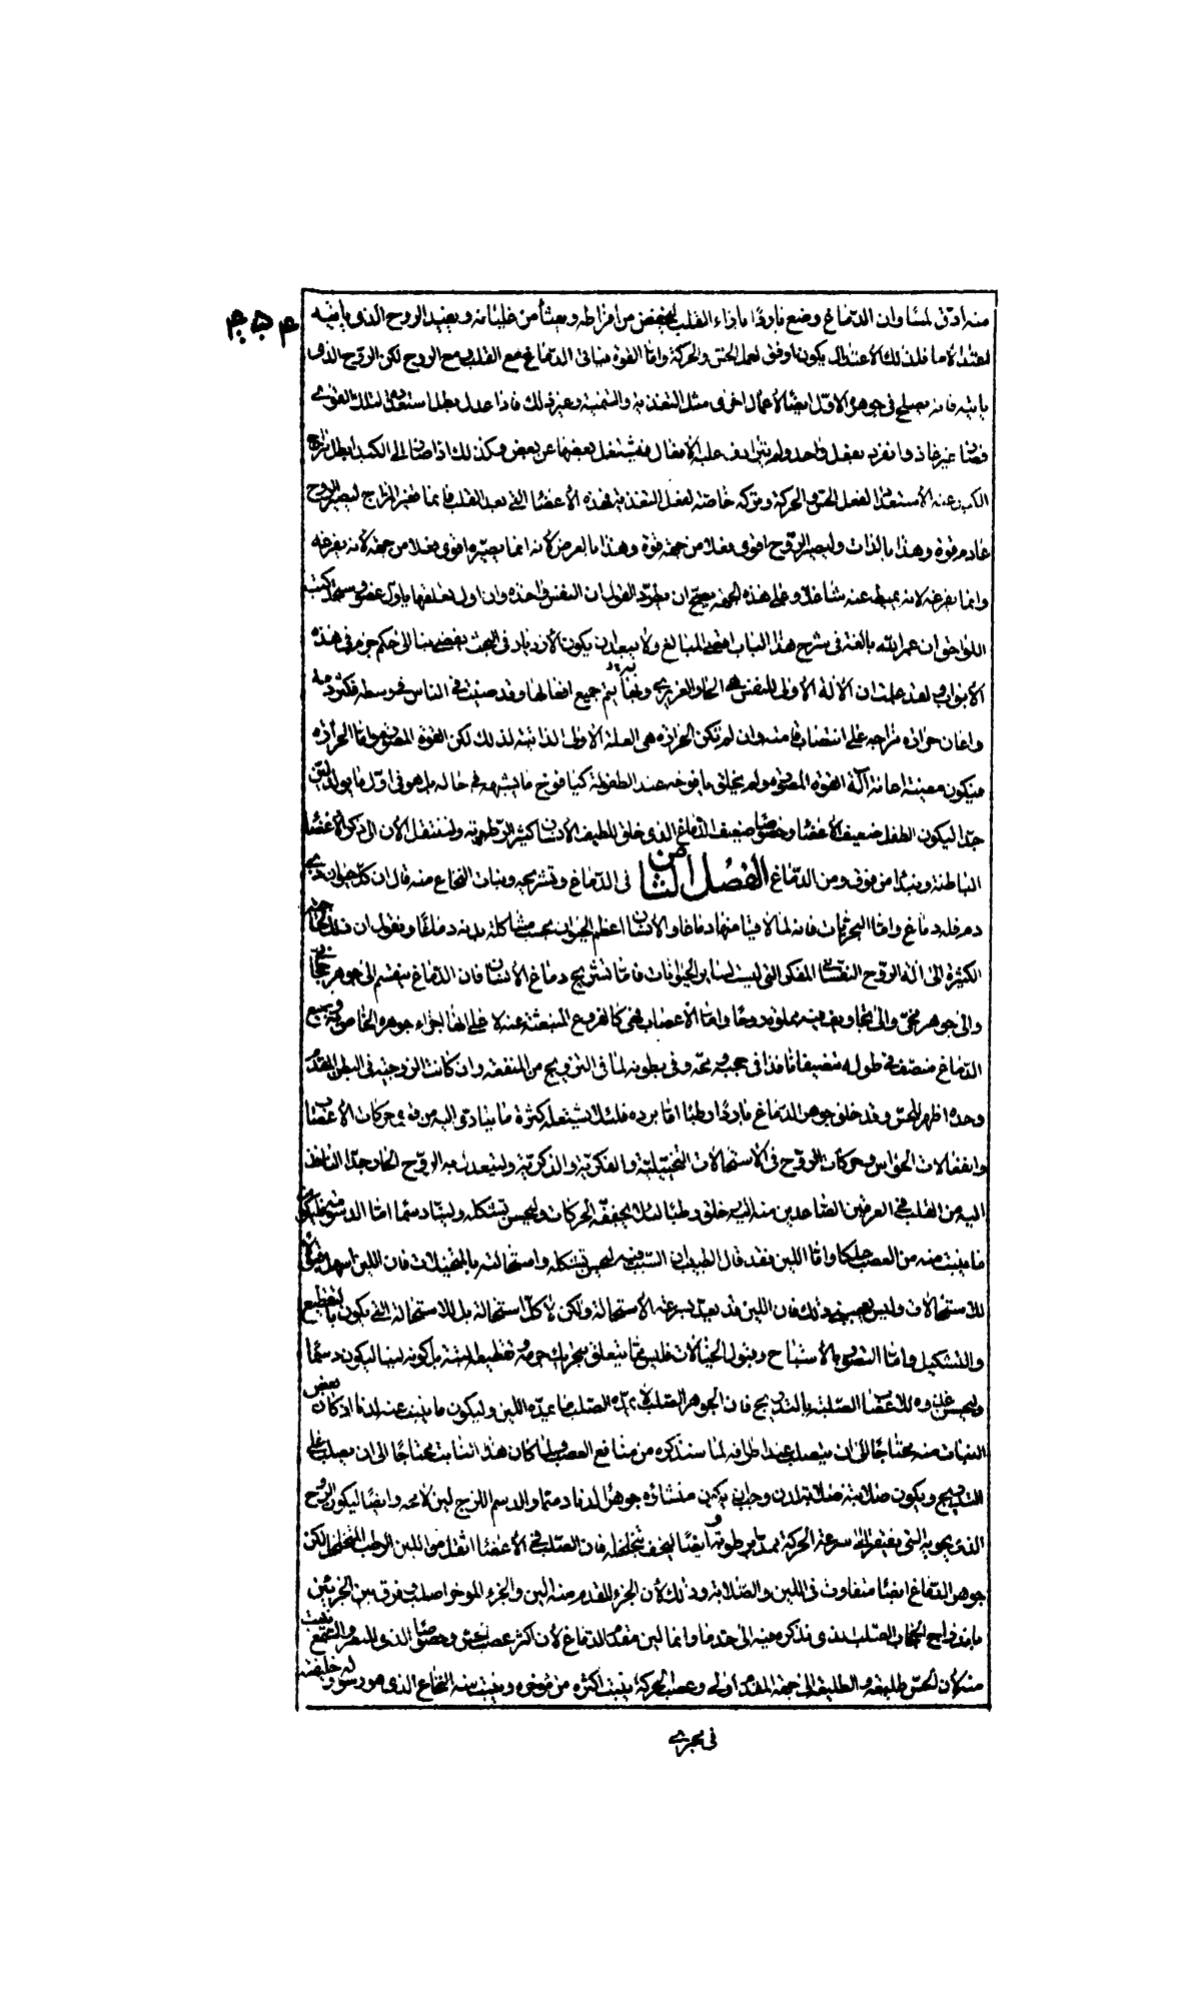 منه ادق لمسا وان الدماغ وضع باردا بازاء القلب ليخفض من افراطه وينشأ من غليانه ويفيد الروح الذى يأتيه
لاعتدالا ما فان ذلك الاعتدال يكون اوفق لفعل الحس والحركة واما القوة فتأتى الدماغ مع القلب مع الروح لكن الروح الذى
يأتيه فانه يصلح فى جوهره الاول ايضا لاعمال اخرى مثل التغذية والتنمية وغير ذلك فاذا عدل بطل استعداده لتلك القوى
فصار غير غاذ وانفرد بفعل واحد ولم يترادف عليه الافعال فيشتغل ببعضها عن بعض وكذلك اذا صار الى الكبد ابطل مزاج
الكبد عنه الاستعداد لفعل الحس والحركة وتركه خاصة لفعل التغذية فهذه الاعضاء التى بعد القلب فانما تغير المزاج ليصير الروح
عادم قوة وهذا بالذات وليصير الروح اقوى بفعلا من جهة قوة وهذا بالعرض لانه انما يصيره اقوى بفعلا من جهة لانه يفرغه
وانما يفرغه لانه يميط عنه شاغلا وعلى هذه الجهة يصح ان يطرد القول ان النفس واحدة وان اول تعلقها باول عضو وستجد كتب
اللواحق ان عمر الله بالغة فى شرح هذا الباب اقصى المبالغ ولا يبعد ان يكون الازدياد فى البحث يفضى بنا الى حكم جزم فى هذه
الابواب ولقد علمت ان الالة الاولى للنفس هى الحار الغريزى وبها يتم جميع افعالها وقد صينت فى الناس فى وسطه فكثرة دمه
واعان حرارة مزاجه على انتصاب قامته وان لم تكن الحرارة هى العلة الاولى الذاتية لذلك لكن القوة المصورة واما الحرارة
فيكون معينة اعانة آلة القوة المصورة ولم يخلق يافوخه عند الطفولة كيافوخ ما يشبهه فى حاله بل هو فى اول ما يولد لين
جدا ليكون الطفل ضعيف الاعضاء وخصوصا ضعيف الدماغ الذى خلق للطيف الانسان كثير الرطوبة ولننتقل الان الى ذكر الاعضاء
الباطنة ونبدأ من فوق ومن الدماغ الفصل الثامن فى الدماغ وتشريحه ونبات النخاع منه قال ان كل حيوان ذى
دم فله دماغ واما البحريات فانه لمالاقيا منها دماغا والانسان اعظم الحيوان بحسب مشاكلة بدنه دماغا ونقول ان ذلك لحاجته
الكثيرة الى آلة الروح النفسانى المفكر التى ليست لسائر الحيوانات فاما تشريح دماغ الانسان فان الدماغ ينقسم الى جوهر حجابى
والى جوهر مخى والى تجاويف فيه مملوة روحا واما الاعصاب فهى كالفروع المنبعثة عنه لا على انها اجزاء جوهره الخاص به وجميع
الدماغ منصف فى طوله تنصيفا نافذا فى حجبه ومخه وفى بطونه لما فى التزويج من المنفعة وان كانت الزوجية فى البطن المقدم
وحده اظهر للحس وقد خلق جوهر الدماغ باردا رطبا اما برده فلئلا يشتعله كثرة ما يتادى اليه من قوى حركات الاعصاب
وانفعالات الحواس وحركات الروح فى الاستحالات التخيلية والفكرية والذكرية وليتعدل به الروح الحار جدا النافذ
اليه من القلب فى العرقين الصاعدين منه اليه خلق رطبا لئلا تجففه الحركات وليحسن تشكله ولينا دسما اما الدسومة فليكون
ما ينبت منه من العصب علكا واما اللين فقد قال الطبيب ان السبب فيه ليحسن تشكله واستحالته بالمتخيلات فان اللين اسهل قبولا
للاستحالات وليس يعجبنى ذلك فان اللين قد يعد لسرعة الاستحالة ولكن لا كل استحالة بل للاستحالة التى يكون بالتقطيع
والتشكيل واما التصور بالاشباح وقبول الخيالات فليس مما يتعلق بتحريك جرمه وتقطيعه البتة بل كونه لينا ليكون دسما
وليحسن غذوه للاعصاب الصلبة بالتدريج فان الجوهر الصلب لا يمده الصلب ما يمده اللين وليكون ما ينبت عنه لدنا اذ كان بعض
النبات منه محتاجا الى ان يتصلب عند اطرافه لما سنذكره من منافع العصب ولما كان هذا النابت محتاجا الى ان يصلب على
التدريج ويكون صلابته صلابة لدن وجب ان يكون منشاؤه جوهرا لدنا دسما والدسم اللزج لين لا محه وايضا ليكون الروح
الذى يحويه الذى يفتقر الى سرعة الحركة ممدا برطوبة وايضا ليخف بتخلخله فان الصلب فى الاعضاء اثقل من اللين الرطب المتخلخل لكن
جوهر الدماغ ايضا متفاوت فى اللين والصلابة وذلك لان الجزء المقدم منه الين والجزء الموخر اصلب وفرق بين الجزئين
باندراج الحجاب الصلب الذى نذكره فيه الى حد ما وانما لين مقدم الدماغ لان اكثر عصب الحس وخصوصا الذى للبصر والسمع ينبت
منه لان الحس طليعة والطليعة الى جهة المقدم اولى وعصب الحركة ينبت اكثره من موخره وينبت منه النخاع الذى هو رسوله وخليفته
فى مجرى